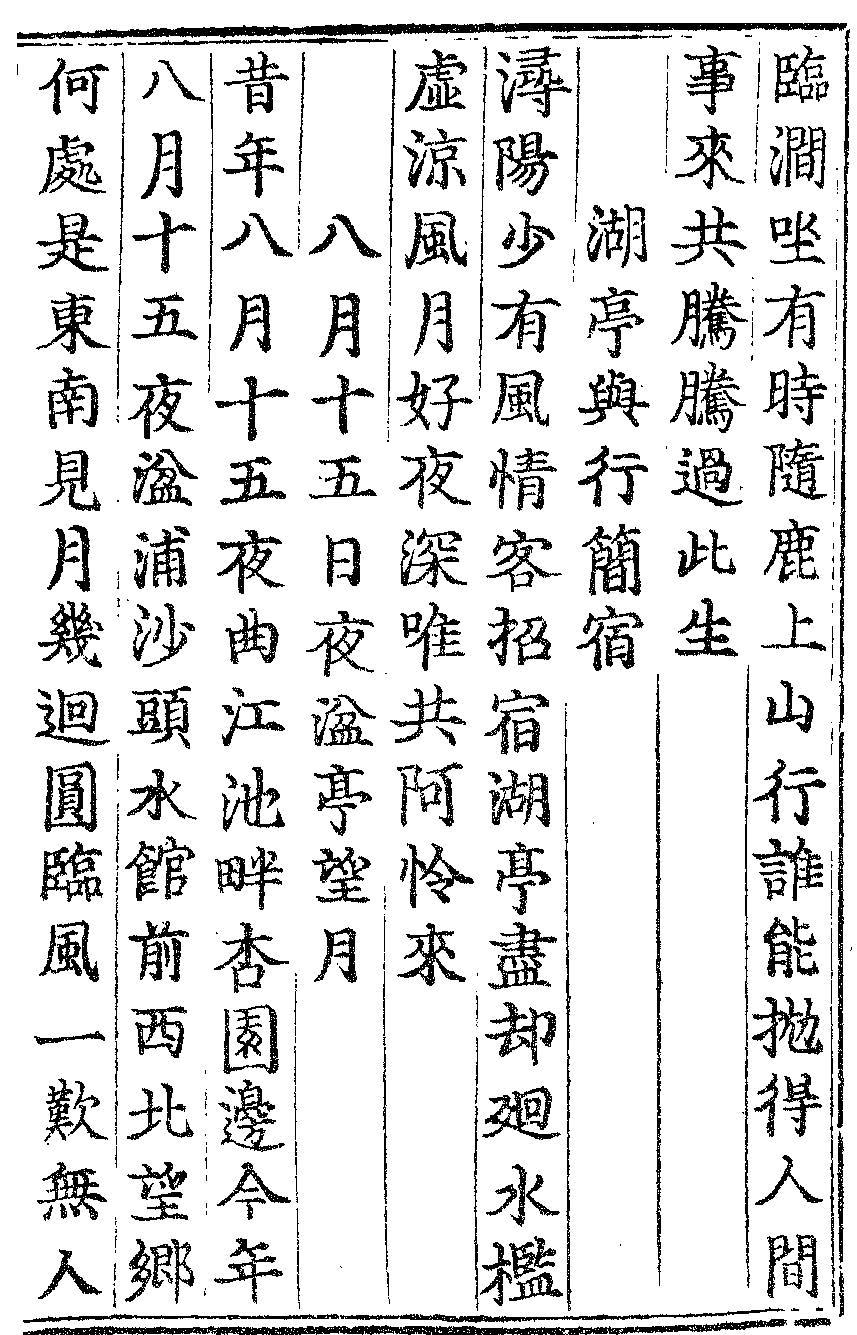 臨澗坐有時隨鹿上山行誰能拋得人間
事來共騰騰過此生
湖亭與行簡宿
潯陽少有風情客招宿湖亭盡却廻水檻
虛涼風月好夜深唯共阿怜來
八月十五日夜湓亭望月
昔年八月十五夜曲江池畔杏園邊今年
八月十五夜湓浦沙頭水館前西北望鄉
何處是東南見月幾迴圓臨風一歎無人